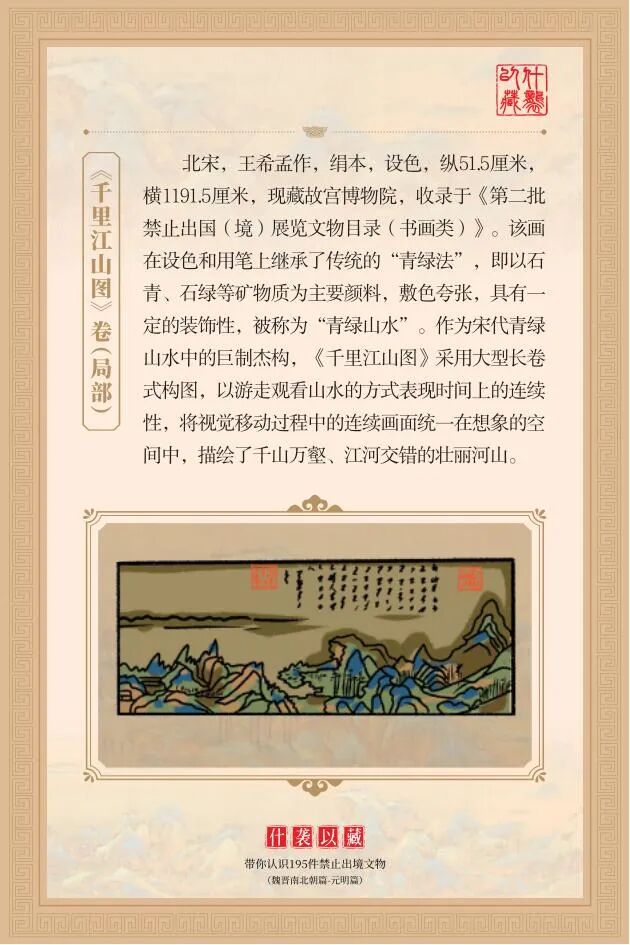 什袭以藏
《千里江山图》卷（局部）
北宋，王希孟作，绢本，设色，纵51.5厘米，
横1191.5厘米，现藏故宫博物院，收录于《第二批
禁止出国（境）展览文物目录（书画类）》。该画
在设色和用笔上继承了传统的“青绿法”，即以石
青、石绿等矿物质为主要颜料，敷色夸张，具有一
定的装饰性，被称为“青绿山水”。作为宋代青绿
山水中的巨制杰构，《千里江山图》采用大型长卷
式构图，以游走观看山水的方式表现时间上的连续
性，将视觉移动过程中的连续画面统一在想象的空
间中，描绘了千山万壑、江河交错的壮丽河山。
什袭以藏
带你认识195件禁止出境文物
（魏晋南北朝篇-元明篇）